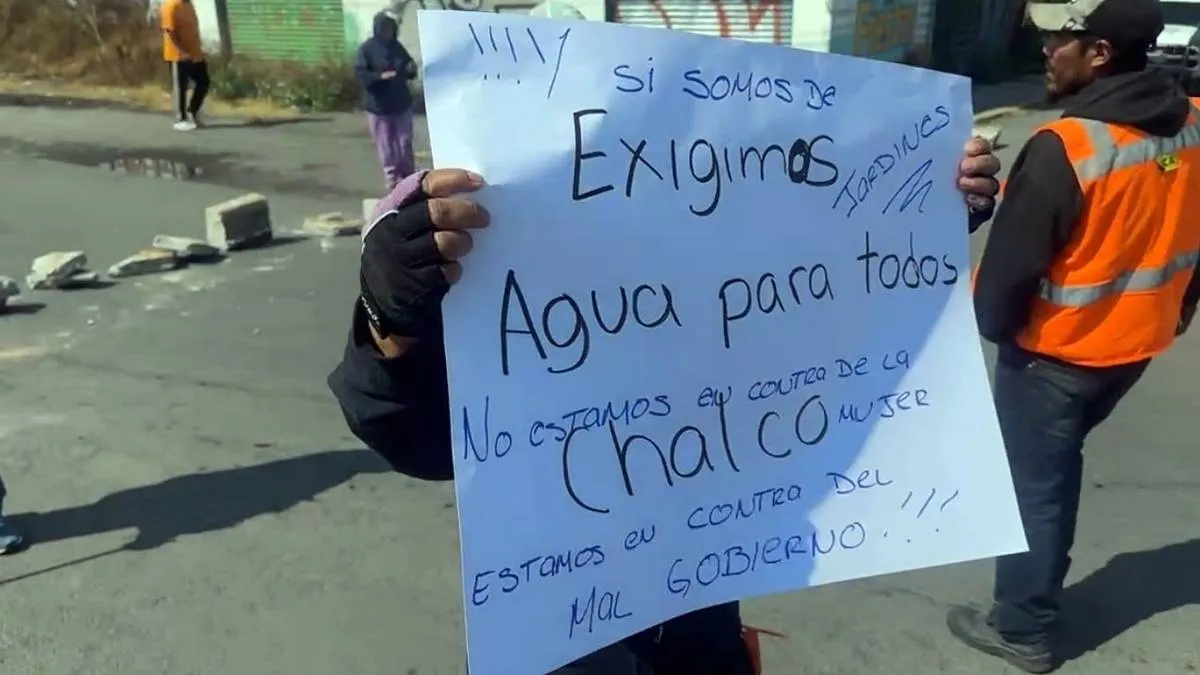 ¡¡¡¡Y SI SOMOS DE
JARDINES
Exigimos
Agua para todos
No ESTAMOS EN CONTRA DE LA
MUJER
Chalco
ESTAMOS EN CONTRA DEL
MAL GOBIERNO...!!!